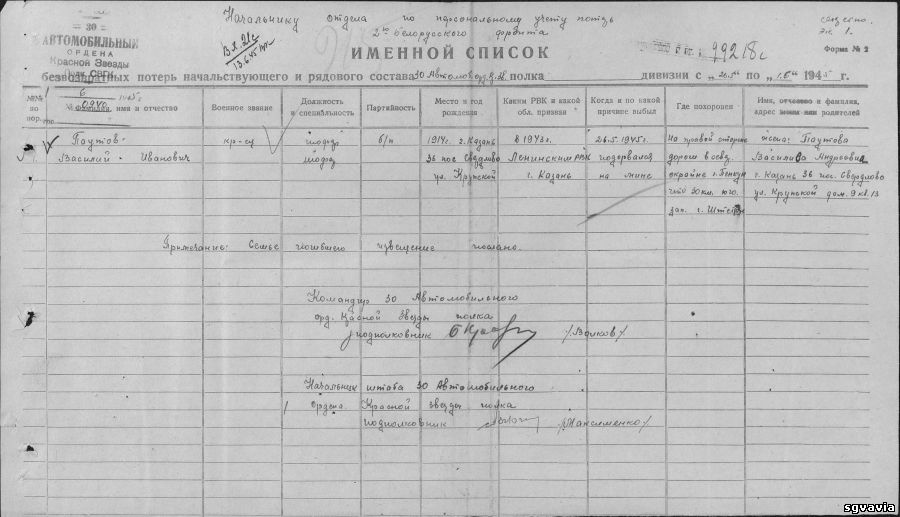 Начальнику отдела по персональному учету потерь
2го Белорусского фронта
секретно.
Экз. 1.
30
АВТОМОБИЛЬНЫЙ
ОРДЕНА
Красной Звезды
Полк СВГК
6 1945 г.
№ 0940
Вх. 21с
13.6.45
ИМЕННОЙ СПИСОК
99218с
Форма № 2
безвозвратных потерь начальствующего и рядового состава 30 Автомоб. полка дивизии с по 1945 г.
№№ по пор.
Фамилия, имя и отчество
Военное звание
Должность и специальность
Партийность
Место и год рождения
Каким РВК и какой обл. призван
Когда и по какой причине выбыл
Где похоронен
Имя, отчество и фамилия, адрес жены или родителей
1. Паутов Василий Иванович
кр-ец
шофер
шофер
б/п
1914 г. г. Казань
36 пос Свердлово
ул. Крупской
В 1943 г.
Ленинским РВК
г. Казань
26.5.1945 г.
подорвался
на мине
на правой стороне
дороги в сев.
окрайне г. Пенкун
что 30 км. юго.
зап. г. Штеттин
жена: Паутова
Василиса Андреевна
г. Казань 36 пос. Свердлово
ул. Крупской дом. 9 кв. 13
Примечание: Семье погибшего извещение послано.
Командир 30 Автомобильного
орд. Красной Звезды полка
подполковник /Волков/
Начальник штаба 30 Автомобильного
Ордена Красной звезды полка
подполковник /Максименко/
sgvavia